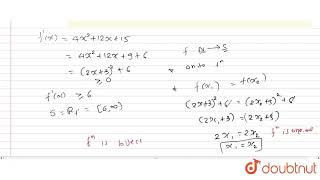 f'(x) = 4x²+12x+15
= 4x²+12x+9+6
= (2x+3)²+6
≥ 0
f'(x) ≥ 6
S = Rf = [6,∞)
fⁿ is
f R→S
* onto fⁿ
* f(x₁) = f(x₂)
(2x₁+3)²+6 = (2x₂+3)²+6
(2x₁+3) = (2x₂+3)
2x₁ = 2x₂
x₁ = x₂
fⁿ is
doubtnut